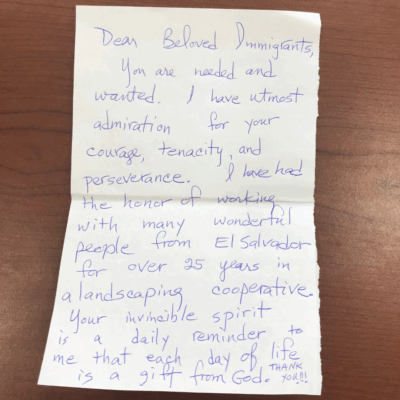 Dear Beloved Immigrants,
You are needed and
wanted. I have utmost
admiration for your
courage, tenacity, and
perseverance. I have had
the honor of working
with many wonderful
people from El Salvador
for over 25 years in
a landscaping cooperative.
Your invincible spirit
is a daily reminder to
me that each day of life
is a gift from God. THANK
YOU!!!